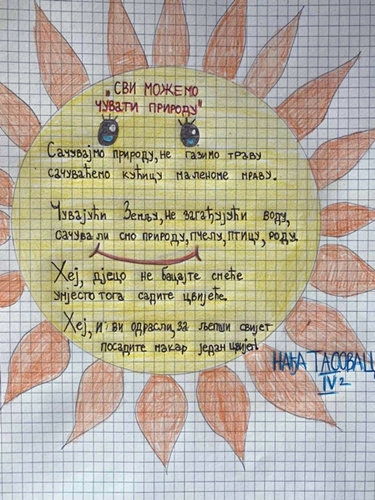 „СВИ МОЖЕМО
ЧУВАТИ ПРИРОДУ"
Сачувајмо природу, не газимо траву
сачуваћемо кућицу маленоме мраву.
Чувајући Земљу, не загађујући воду,
сачували смо природу, пчелу, птицу, роду.
Хеј, дјецо не бацајте смеће
умјесто тога садите цвијеће.
Хеј, и ви одрасли, за љепши свијет
посадите макар један цвијет!
НАЂА ТАСОВАЦ
IV2